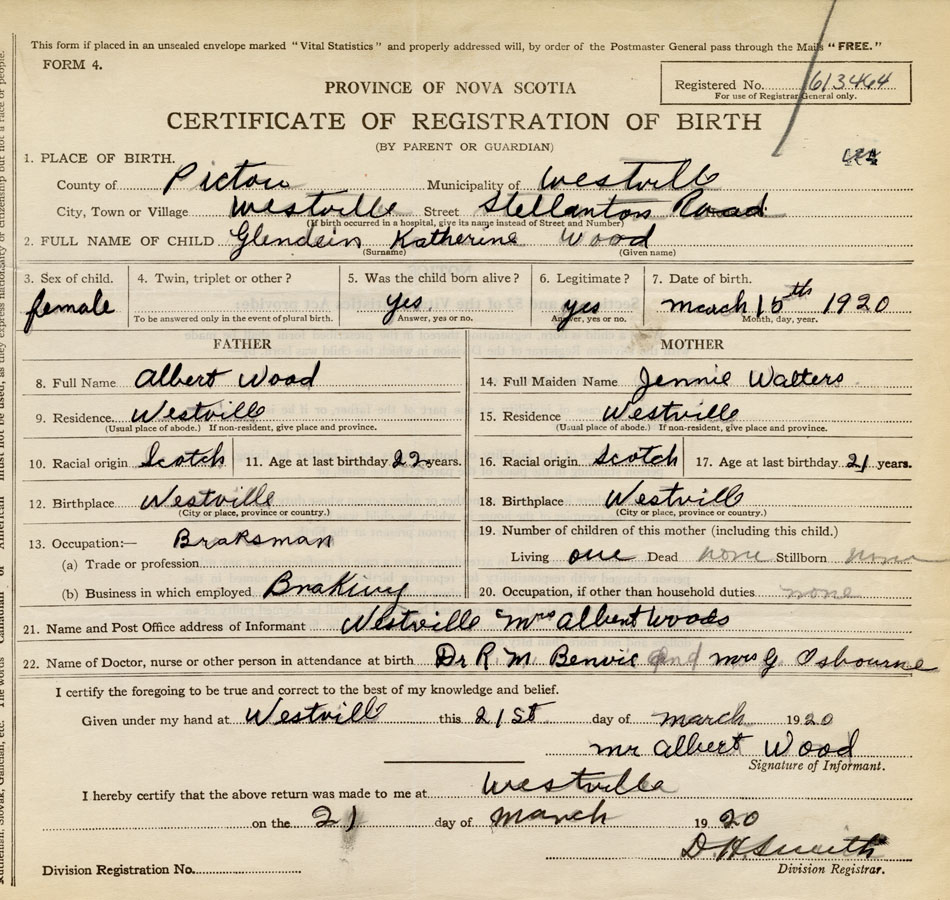 This form if placed in an unsealed envelope marked "Vital Statistics" and properly addressed will, by order of the Postmaster General pass through the Mails "FREE."
FORM 4.
Registered No. 613464
For use of Registrar General only.
PROVINCE OF NOVA SCOTIA
CERTIFICATE OF REGISTRATION OF BIRTH
(BY PARENT OR GUARDIAN)
1. PLACE OF BIRTH.
County of Pictou Municipality of Westville
City, Town or Village Westville Street Stellanton Road
(If birth occurred in a hospital, give its name instead of Street and Number)
2. FULL NAME OF CHILD Glendein Katherine Wood
(Surname) (Given name)
3. Sex of child. 4. Twin, triplet or other? 5. Was the child born alive? 6. Legitimate? 7. Date of birth.
female yes yes march 15th 1920
To be answered only in the event of plural birth. Answer, yes or no. Answer, yes or no. Month, day, year.
FATHER MOTHER
8. Full Name Albert Wood 14. Full Maiden Name Jennie Walters
9. Residence. Westville 15. Residence Westville
(Usual place of abode.) If non-resident, give place and province. (Usual place of abode.) If non-resident, give place and province.
10. Racial origin Scotch 11. Age at last birthday 22 years. 16. Racial origin Scotch 17. Age at last birthday 21 years.
12. Birthplace Westville 18. Birthplace Westville
(City or place, province or country.) (City or place, province or country.)
13. Occupation:— Braksman 19. Number of children of this mother (including this child.)
(a) Trade or profession Living one Dead none Stillborn none
(b) Business in which employed Braking 20. Occupation, if other than household duties none
21. Name and Post Office address of Informant Westville Mrs Albert Woods
22. Name of Doctor, nurse or other person in attendance at birth Dr R. M. Benvie and mrs G Osbourne
I certify the foregoing to be true and correct to the best of my knowledge and belief.
Given under my hand at Westville this 21st day of march 1920
mr Albert Wood
Signature of Informant.
I hereby certify that the above return was made to me at Westville
on the 21 day of march 1920
D H Smith
Division Registration No. Division Registrar.